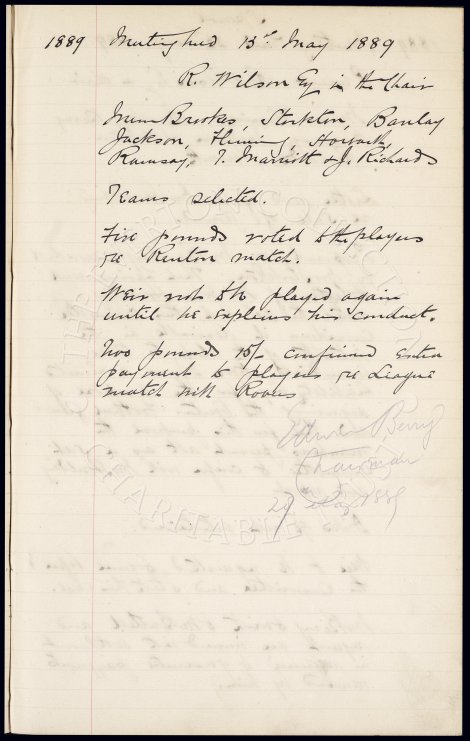 1889 Meeting held 13th May 1889
R. Wilson Esq in the Chair
Brooks, Stockton, Barclay
Jackson, Fleming, Howarth,
Ramsay, T. Marriott & J. Richards
Teams selected.
Five pounds voted to the players
re Renton match.
Weir not to be played again
until he explains his conduct.
Two pounds 10/- confirmed extra
payment to players re League
match with Rovers
Berry
Chairman
1889
THE HARRIS
CHARITABLE